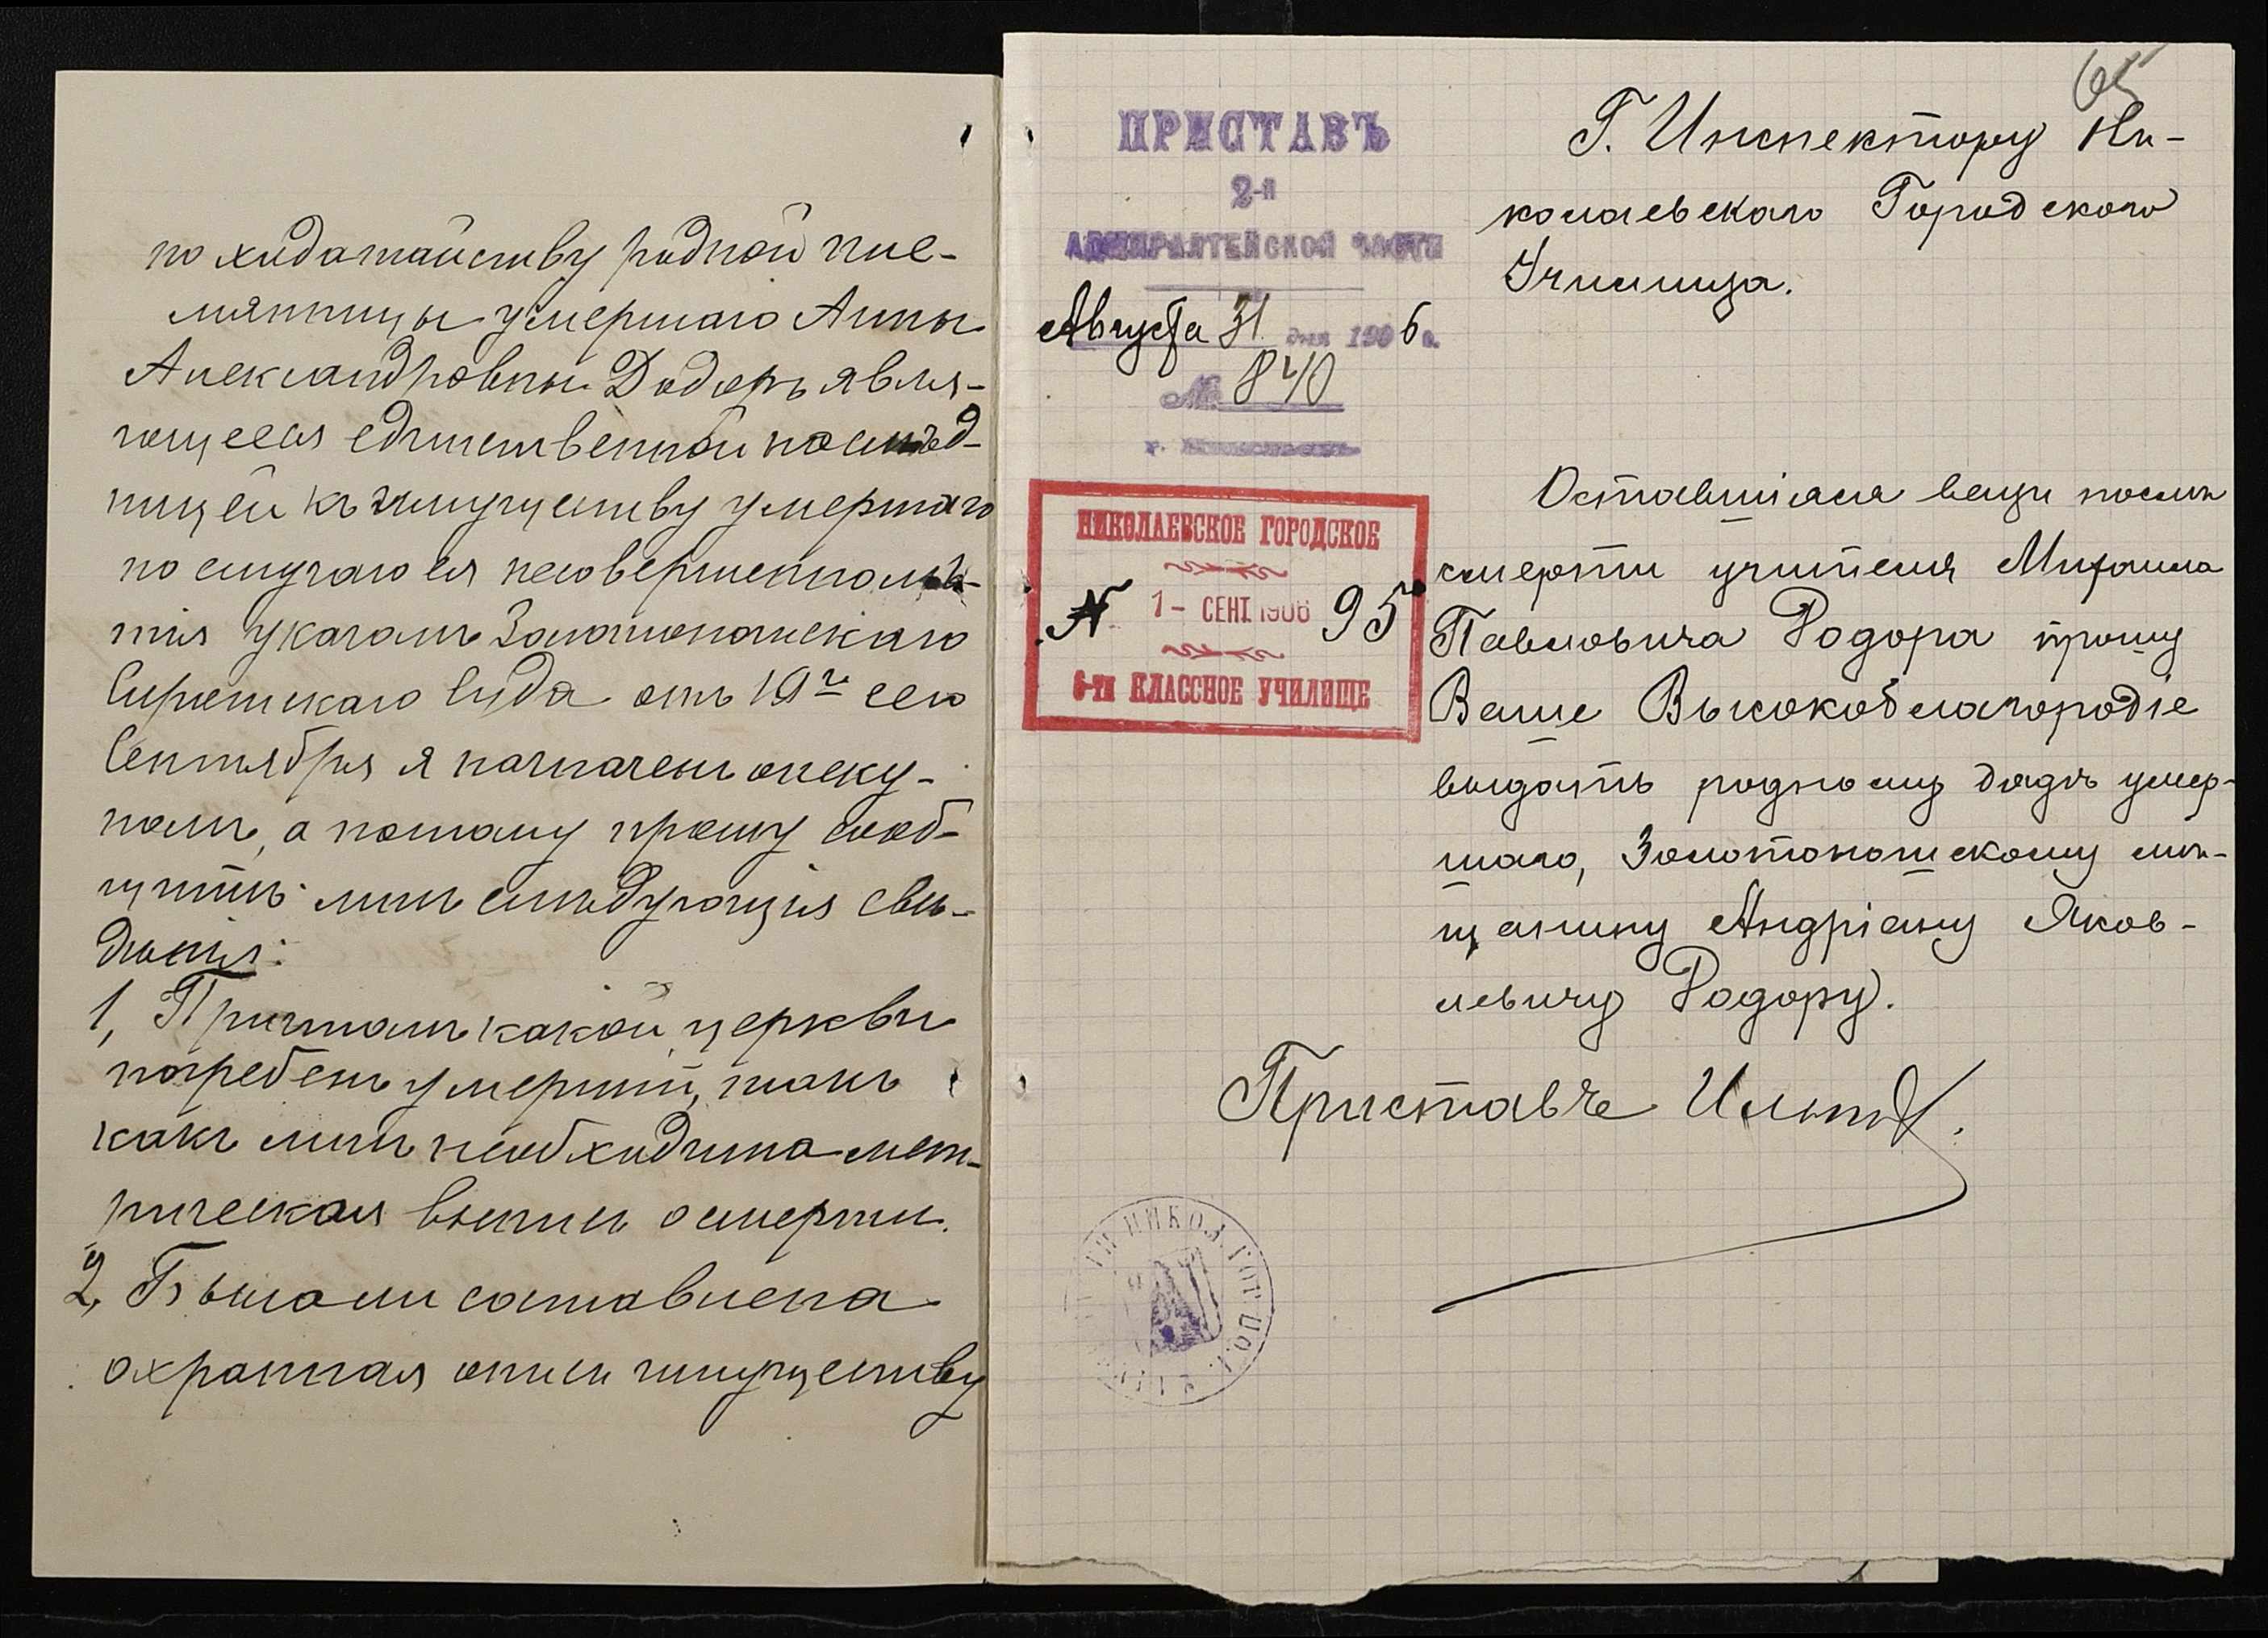 по ходатайству родной пле-
мянницы умершаго Анны
Александровны Додоръ явля-
ющеея единственной наслѣд-
ницей къ имуществу умершаго
по случаю ея несовершеннолѣ-
тія указомъ Золотоношскаго
Сиротскаго Суда отъ 19го сего
Сентября я назначенъ опеку-
номъ, а потому прошу сооб-
щить мнѣ слѣдующія свѣ-
дѣнія:
1, Причтомъ какой церкви
погребенъ умершій, такъ
какъ мнѣ необходима мет-
рическая выпись о смерти.
2, Была ли составлена
охранная опись имуществу
65
ПРИСТАВЪ
2-й
АДМИРАЛТЕЙСКОЙ ЧАСТИ
Августа 31 дня 1906 г.
№ 840
г.
НИКОЛАЕВСКОЕ ГОРОДСКОЕ
N 1 - СЕНТ. 1906 95
6-ТИ КЛАССНОЕ УЧИЛИЩЕ
Г. Инспектору Ни-
колаевскаго Городского
Училища.
Оставшіяся вещи послѣ
смерти учителя Михаила
Павловича Додора прошу
Ваше Высокоблагородіе
выдать родному дядѣ умер-
шаго, Золотоношскому мѣ-
щанину Андріану Яков-
левичу Додору.
Приставъ
НИКОЛ. ГОР. ПОЛ.